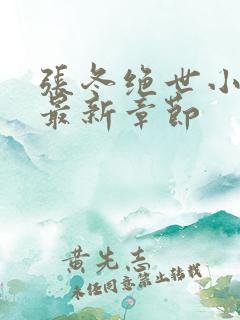 張冬绝世小
最新章節
黄先志
未经同意禁止转载